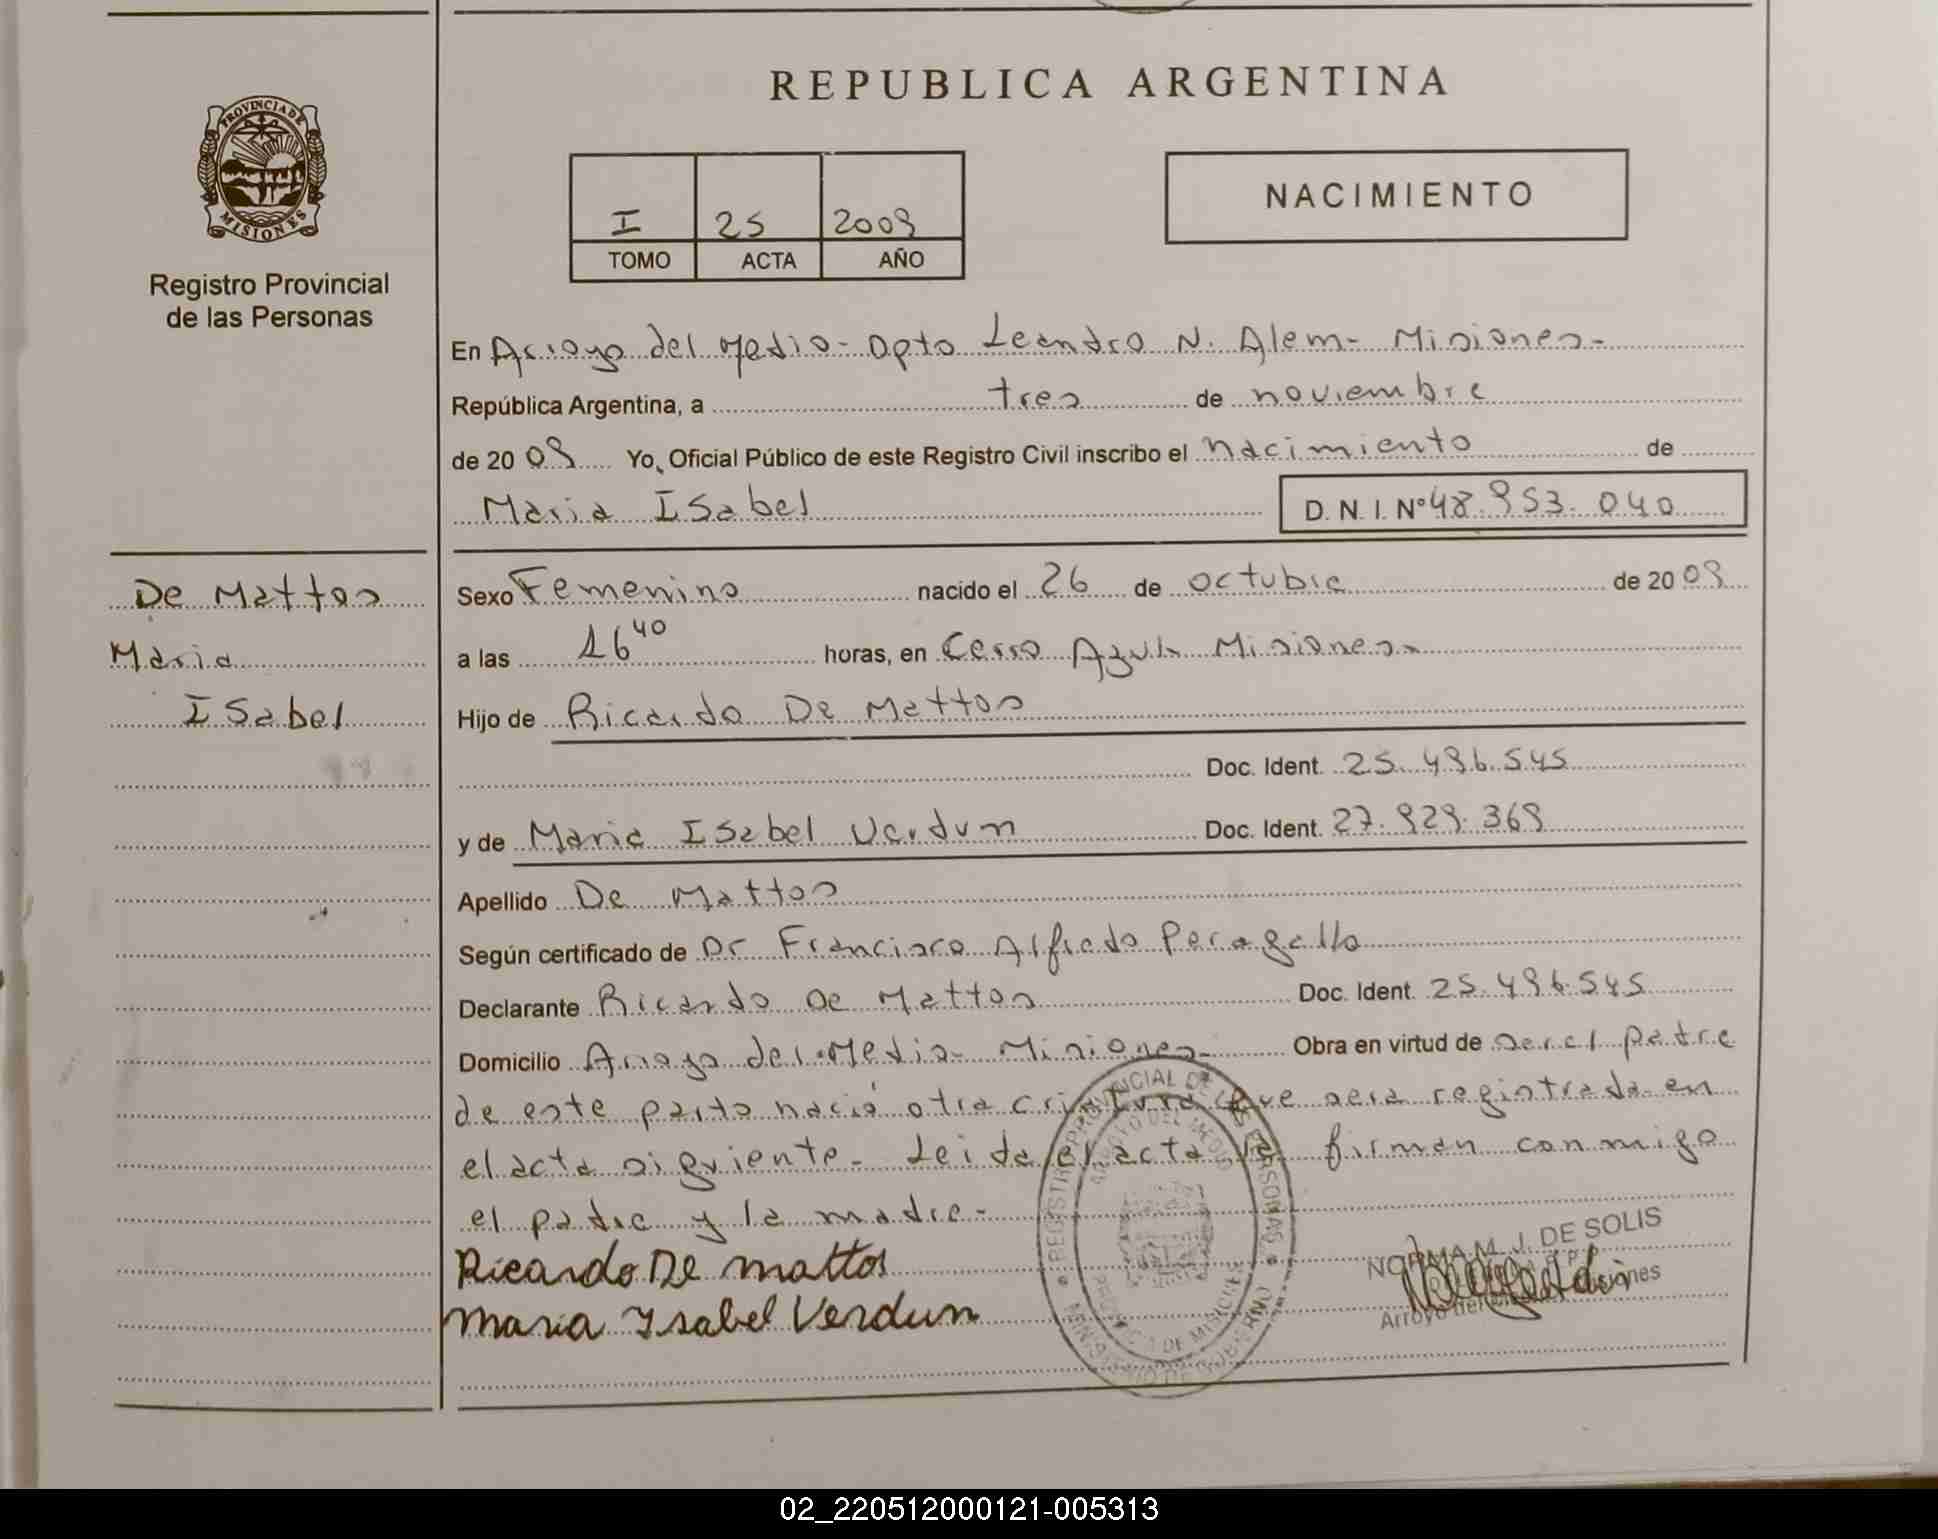 REPUBLICA ARGENTINA
PROVINCIA DE MISIONES
Registro Provincial
de las Personas
I 25 2009
TOMO ACTA AÑO
NACIMIENTO
En Arroyo del Medio - Dpto Leandro N. Alem - Misiones -
República Argentina, a tres de noviembre
de 20 09 Yo, Oficial Público de este Registro Civil inscribo el nacimiento de
Maria ISabel D. N. I. Nº 48.953.040
De Mattos
Maria
ISabel
Sexo Femenino nacido el 26 de octubre de 20 09
a las 16 40 horas, en Cerro Azul - Misiones -
Hijo de Ricardo De Mattos
Doc. Ident. 25.496.545
y de Maria ISabel Verdun Doc. Ident. 27.929.369
Apellido De Mattos
Según certificado de Dr Francisco Alfredo Peragallo
Declarante Ricardo De Mattos Doc. Ident. 25.496.545
Domicilio Arroyo del Medio - Misiones - Obra en virtud de ser el padre
de este parto nació otra criatura que sera registrada en
el acta siguiente - Leida el acta la firman conmigo
el padre y la madre -
Ricardo De mattos
Maria Ysabel Verdun
REGISTRO PROVINCIAL DE LAS PERSONAS
ARROYO DEL MEDIO
PROVINCIA DE MISIONES
MINISTERIO DE GOBIERNO
NORMA M. J. DE SOLIS
Arroyo del Misiones
02_220512000121-005313